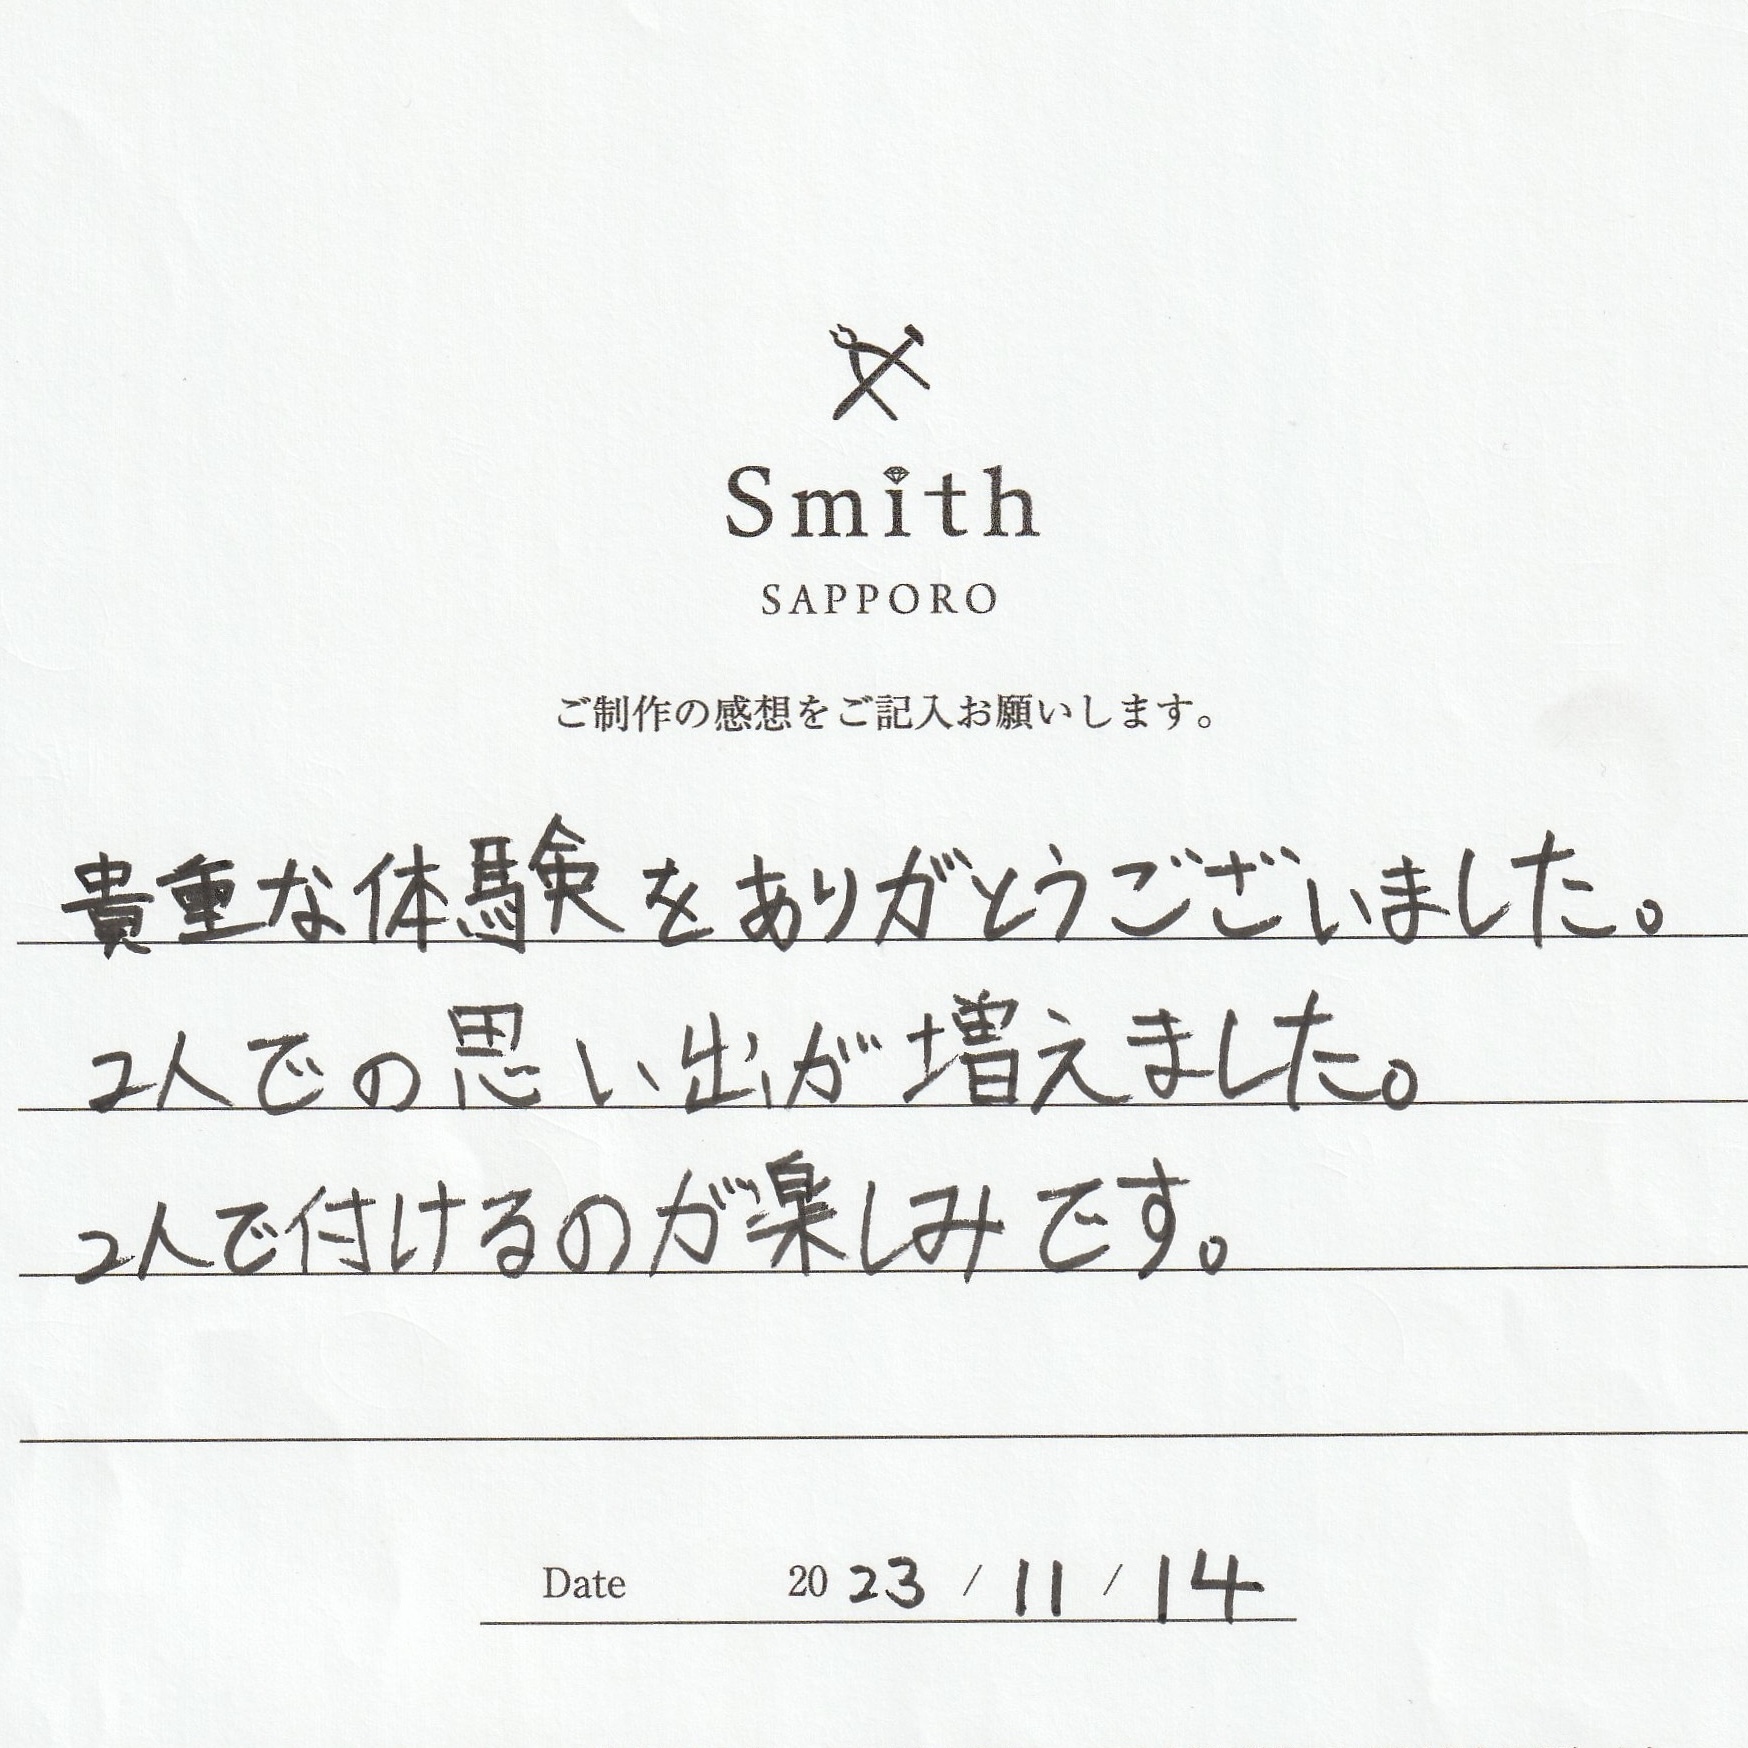 Smith
SAPPORO
ご制作の感想をご記入お願いします。
貴重な体験をありがとうございました。
2人での思い出が増えました。
2人で付けるのが楽しみです。
Date 2023 / 11 / 14